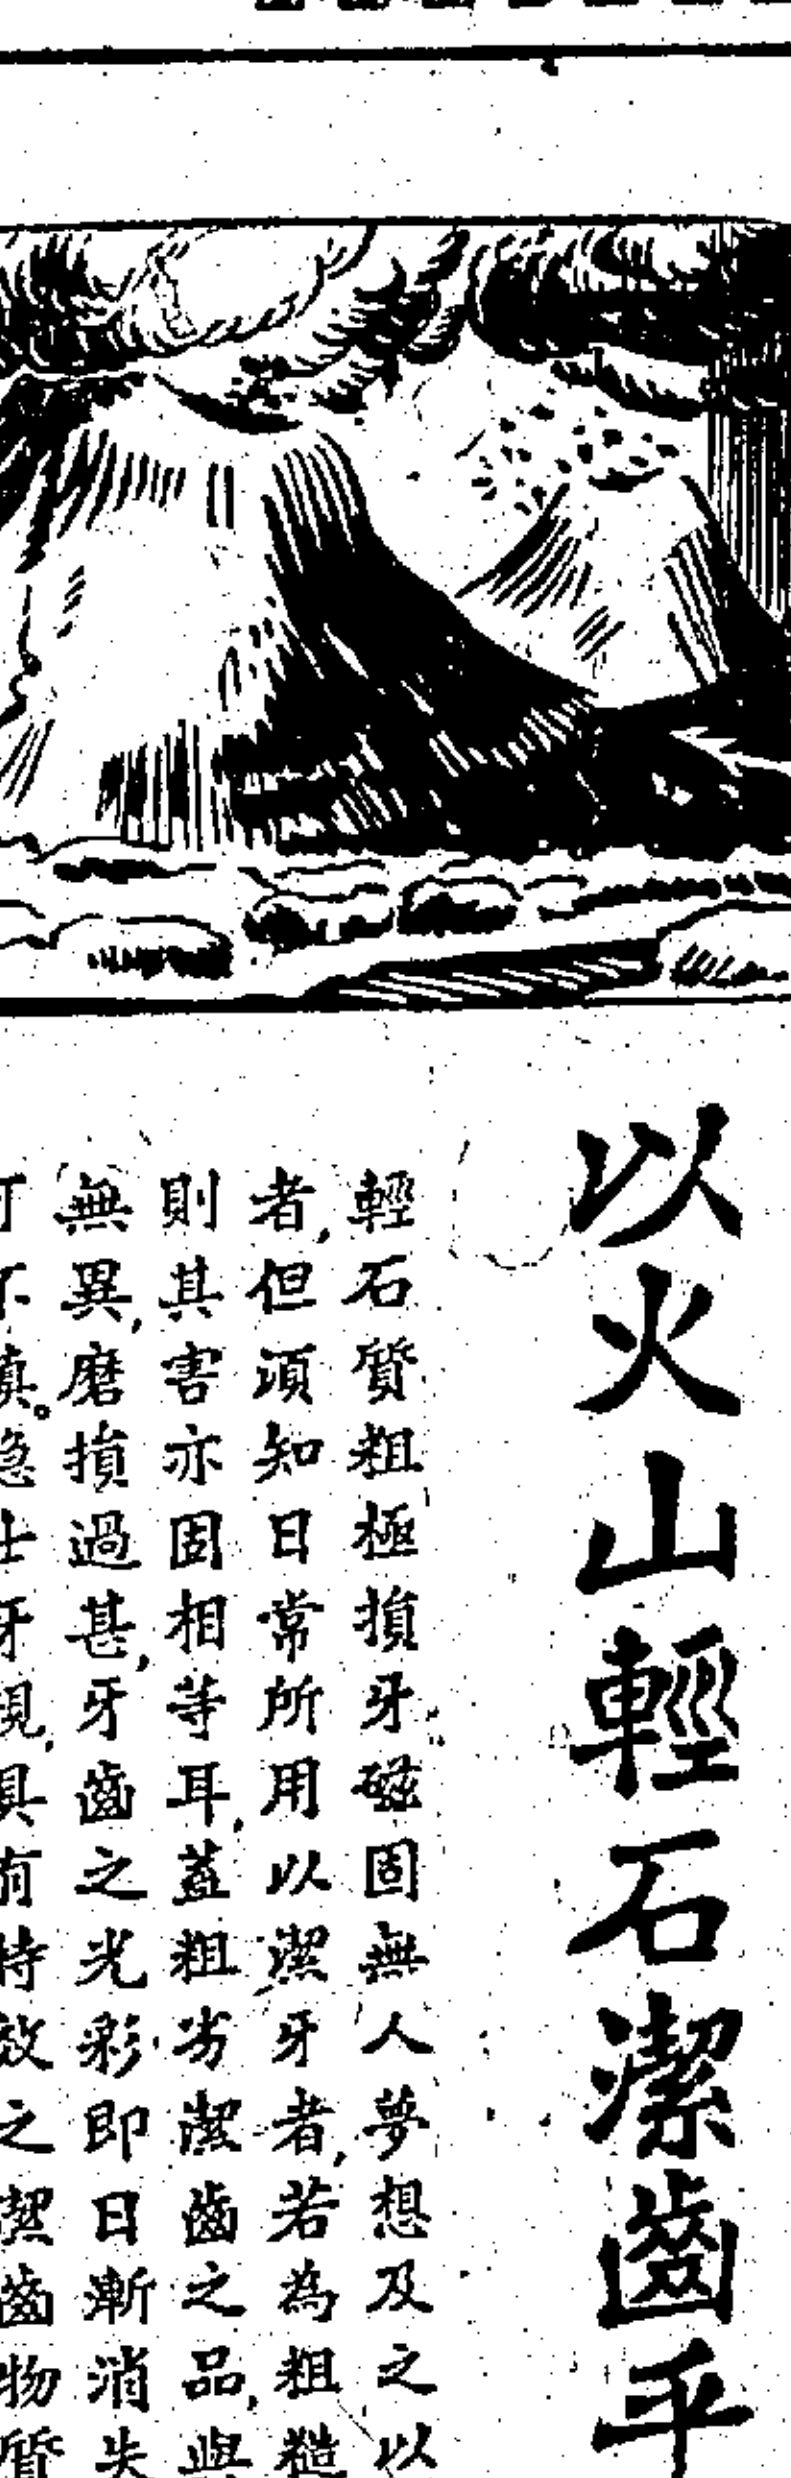 以火山輕石潔齒乎
輕石質粗極損牙磁固無人夢想及之以
者，但須知日常所用以潔牙者，若為粗糙
則其害亦固相等耳，蓋粗劣潔齒之品，與
無異，磨損過甚，牙齒之光彩即日漸消失
可不慎。 士牙 具有特效之潔齒物質